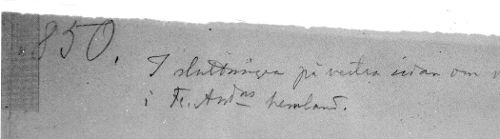 850.
I sluttningen på vestra sidan om
i Fr. And^as hemland.